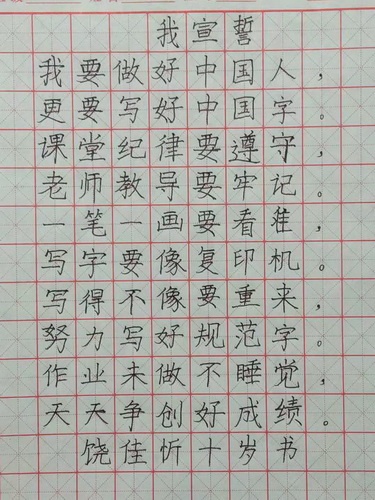 我宣誓
我要做好中国人，
更要写好中国字。
课堂纪律要遵守，
老师教导要牢记。
一笔一画要看准，
写字要像复印机。
写得不像要重来，
努力写好规范字。
作业未做不睡觉，
天天争创好成绩。
饶佳忻十岁书